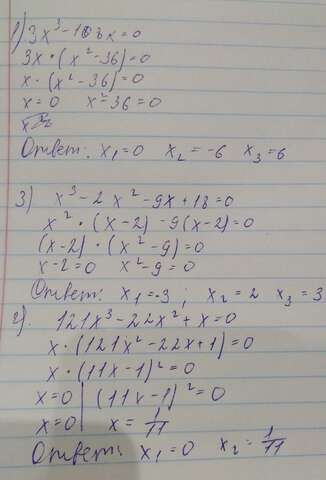 1) 3x³-108x=0
3x·(x²-36)=0
x·(x²-36)=0
x=0 x²-36=0
Ответ: x₁=0 x₂=-6 x₃=6
3) x³-2x²-9x+18=0
x²·(x-2)-9(x-2)=0
(x-2)·(x²-9)=0
x-2=0 x²-9=0
Ответ: x₁=-3; x₂=2 x₃=3
2). 121x³-22x²+x=0
x·(121x²-22x+1)=0
x·(11x-1)²=0
x=0 | (11x-1)²=0
x=0 | x=1/11
Ответ: x₁=0 x₂=1/11